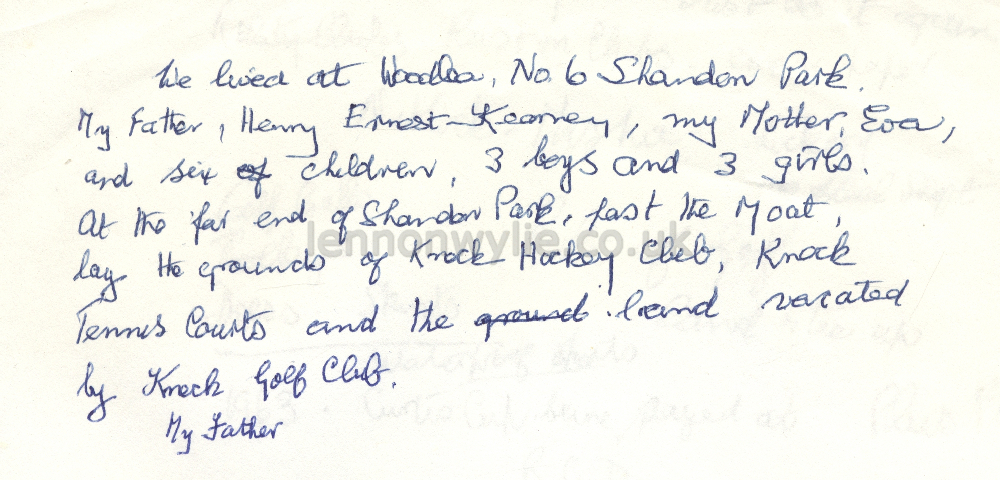 We lived at Woodlea, No. 6 Shandon Park.
My Father, Henry Ernest Kearney, my Mother, Eva,
and six of children, 3 boys and 3 girls.
At the far end of Shandon Park, past the Moat,
lennonwylie.co.uk
lay the grounds of Knock Hockey Club, Knock
Tennis Courts and the ground land vacated
by Knock Golf Club.
My Father